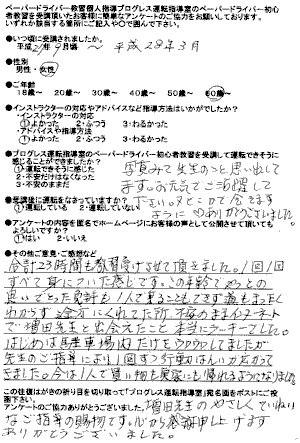 ペーパードライバー教習個人指導プログレス運転指導室のペーパードライバー初心
者教習を受講頂いたお客様に簡単なアンケートのご協力をお願いしております。
いずれか該当する箇所にご記入や〇で囲んで下さい。
●いつ頃に受講されましたか。
平成27年9月頃 ～ 平成28年3月
●性別
男性・女性
●ご年齢
18歳～ 20歳～ 30歳～ 40歳～ 50歳～ 60歳～
●インストラクターの対応やアドバイスなど指導方法はいかがでしたか？
・インストラクターの対応
1)よかった 2・ふつう 3・わるかった
・アドバイスや指導方法
1)よかった 2・ふつう 3・わるかった
●プログレス運転指導室のペーパードライバー初心者教習を受講して運転できそうに
感じることができましたか？
1)運転できそうに感じた
2・不安だけはなくなった
3・不安のままだ
写真みて先生のこと思い出して
ます。お元気でご活躍して
下さい。
ありがとうございました。
●受講後に運転をなさっていますか？
1)運転している 2・運転していない
●アンケートの内容を匿名でホームページにお客様の声として公開させて頂いても
よろしいですか？
1)はい 2・いいえ
●その他ご意見・ご感想など
合計23時間も教習受けさせて頂きました。1回1回
すべて身についた感じです。この年齢でやっとの
思いでとった免許も1人で乗ることもできず道もまったく
わからず
で増田先生と出会えたこと本当にラッキーでした。
はじめは駐車場内だけをウロウロしてましたが
先生のご指導により1回ずつ行動はんいが広がって
きました。今は1人で買い物も実家にも帰れるようになりました。
この往復はがきの折り目を切り取って「プログレス運転指導室」宛名面をポストにご投
函下さい。
アンケートのご協力ありがとうございました。
増田先生のやさしくていねい
なご指導の賜物です。心から感謝申し上げます
ありがとうございました。